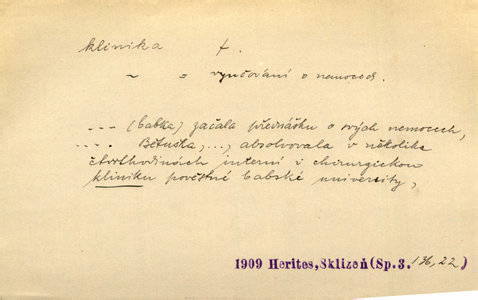 klinika f.
~ o vyučování o nemocech.
--- (babka) začala přednášku o svých nemocech,
---. Bětuška, ..., absolvovala v několika
čtvrthodinách interní i chirurgickou
kliniku pověstné babské university,
1909 Herites, Sklizeň (Sp. 3. 136, 22)